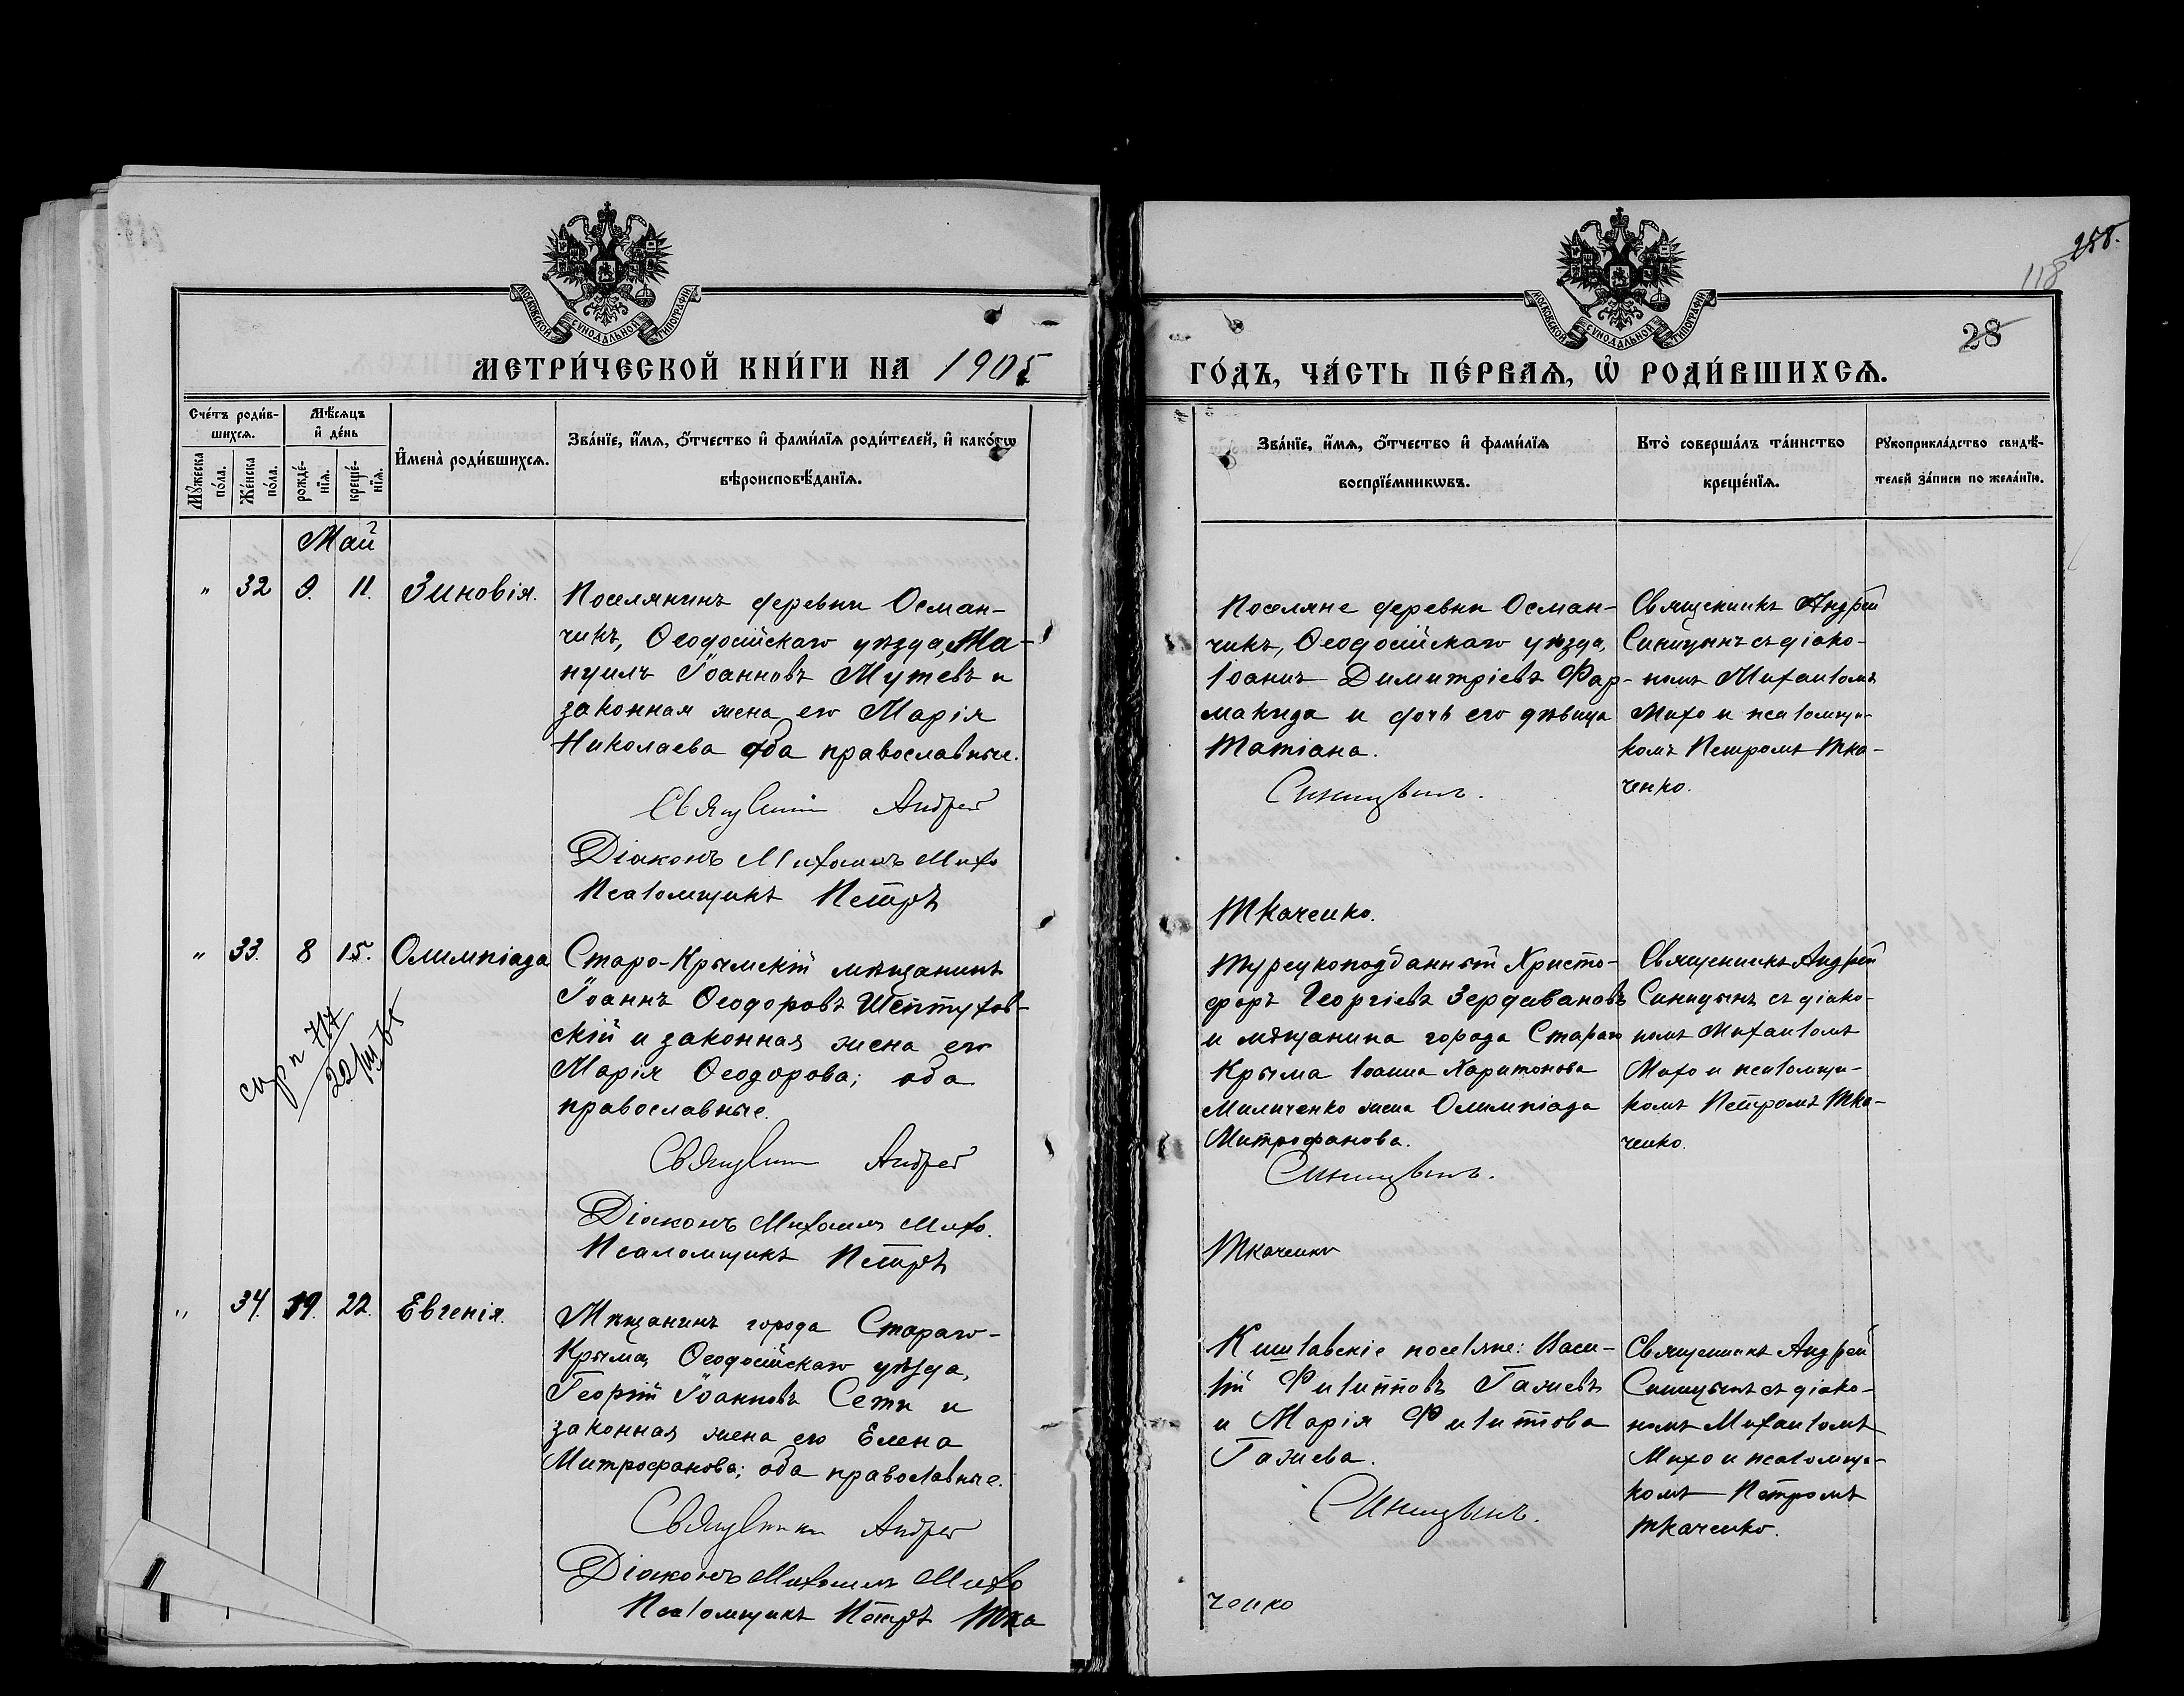 258.
118
28
МОСКОВСКОЙ СѴНОДАЛЬНОЙ ТИПОГРАФІИ
МОСКОВСКОЙ СѴНОДАЛЬНОЙ ТИПОГРАФІИ
МЕТРИ́ЧЕСКОЙ КНИ́ГИ НА 1905
ГО́ДЪ, ЧА́СТЬ ПЕ́РВАѦ, Ѡ҆ РОДИ́ВШИХСѦ.
Сче́тъ роди́в-
шихсѧ.
Мѹ́жеска по́ла.
Же́нска по́ла.
Мѣ́сѧцъ
и҆ де́нь
рожде́-
нїѧ.
креще́-
нїѧ.
И҆мена̀ роди́вшихсѧ.
Зва́нїе, и҆́мѧ, ѻ҆́тчество и҆ фами́лїѧ роди́телей, и҆ како́гѡ
вѣроисповѣ́данїѧ.
Зва́нїе, и҆́мѧ, ѻ҆́тчество и҆ фами́лїѧ
воспрїе́мникѡвъ.
Кто̀ соверша́лъ та́инство
креще́нїѧ.
Рꙋкоприкла́дство свидѣ́-
телей за́писи по жела́нїю.
Май
" 32 9. 11. Зиновія.
Поселянинъ деревни Осман-
чикъ, Ѳеодосійскаго уѣзда, Ма-
нуилъ Іоанновъ Мутевъ и
законная жена его Марія
Николаева оба православные.
Священникъ Андрей
Діаконъ Михаилъ Михо
Псаломщикъ Петръ
Поселяне деревни Осман-
чикъ, Ѳеодосійскаго уѣзда,
Іоаннъ Димитріевъ Фар-
макида и дочь его дѣвица
Татіана.
Синицынъ.
Ткаченко.
Священникъ Андрей
Синицынъ съ діако-
номъ Михаиломъ
Михо и псаломщи-
комъ Петромъ Тка-
ченко.
" 33. 8 15. Олимпіада
спр n 717
22/III 65
Старо-Крымскій мѣщанинъ
Іоаннъ Ѳеодоровъ Шептухов-
скій и законная жена его
Марія Ѳеодорова; оба
православные.
Священникъ Андрей
Діаконъ Михаилъ Михо.
Псаломщикъ Петръ
Турецкоподданный Христо-
форъ Георгіевъ Зердавановъ
и мѣщанина города Стараго
Крыма Іоанна Харитонова
Миличенко жена Олимпіада
Митрофанова.
Синицынъ.
Ткаченко
Священникъ Андрей
Синицынъ съ діако-
номъ Михаиломъ
Михо и псаломщи-
комъ Петромъ Тка-
ченко.
" 34. 19. 22. Евгенія.
Мѣщанинъ города Стараго-
Крыма, Ѳеодосійскаго уѣзда,
Георгій Іоанновъ Сети и
законная жена его Елена
Митрофанова; оба православные.
Священникъ Андрей
Діаконъ Михаилъ Михо
Псаломщикъ Петръ Тка
Кишлавскіе поселяне: Васи-
лій Филипповъ Гажевъ
и Марія Филиппова
Гажева.
Синицынъ.
ченко
Священникъ Андрей
Синицынъ съ діако-
номъ Михаиломъ
Михо и псаломщи-
комъ Петромъ
Ткаченко.